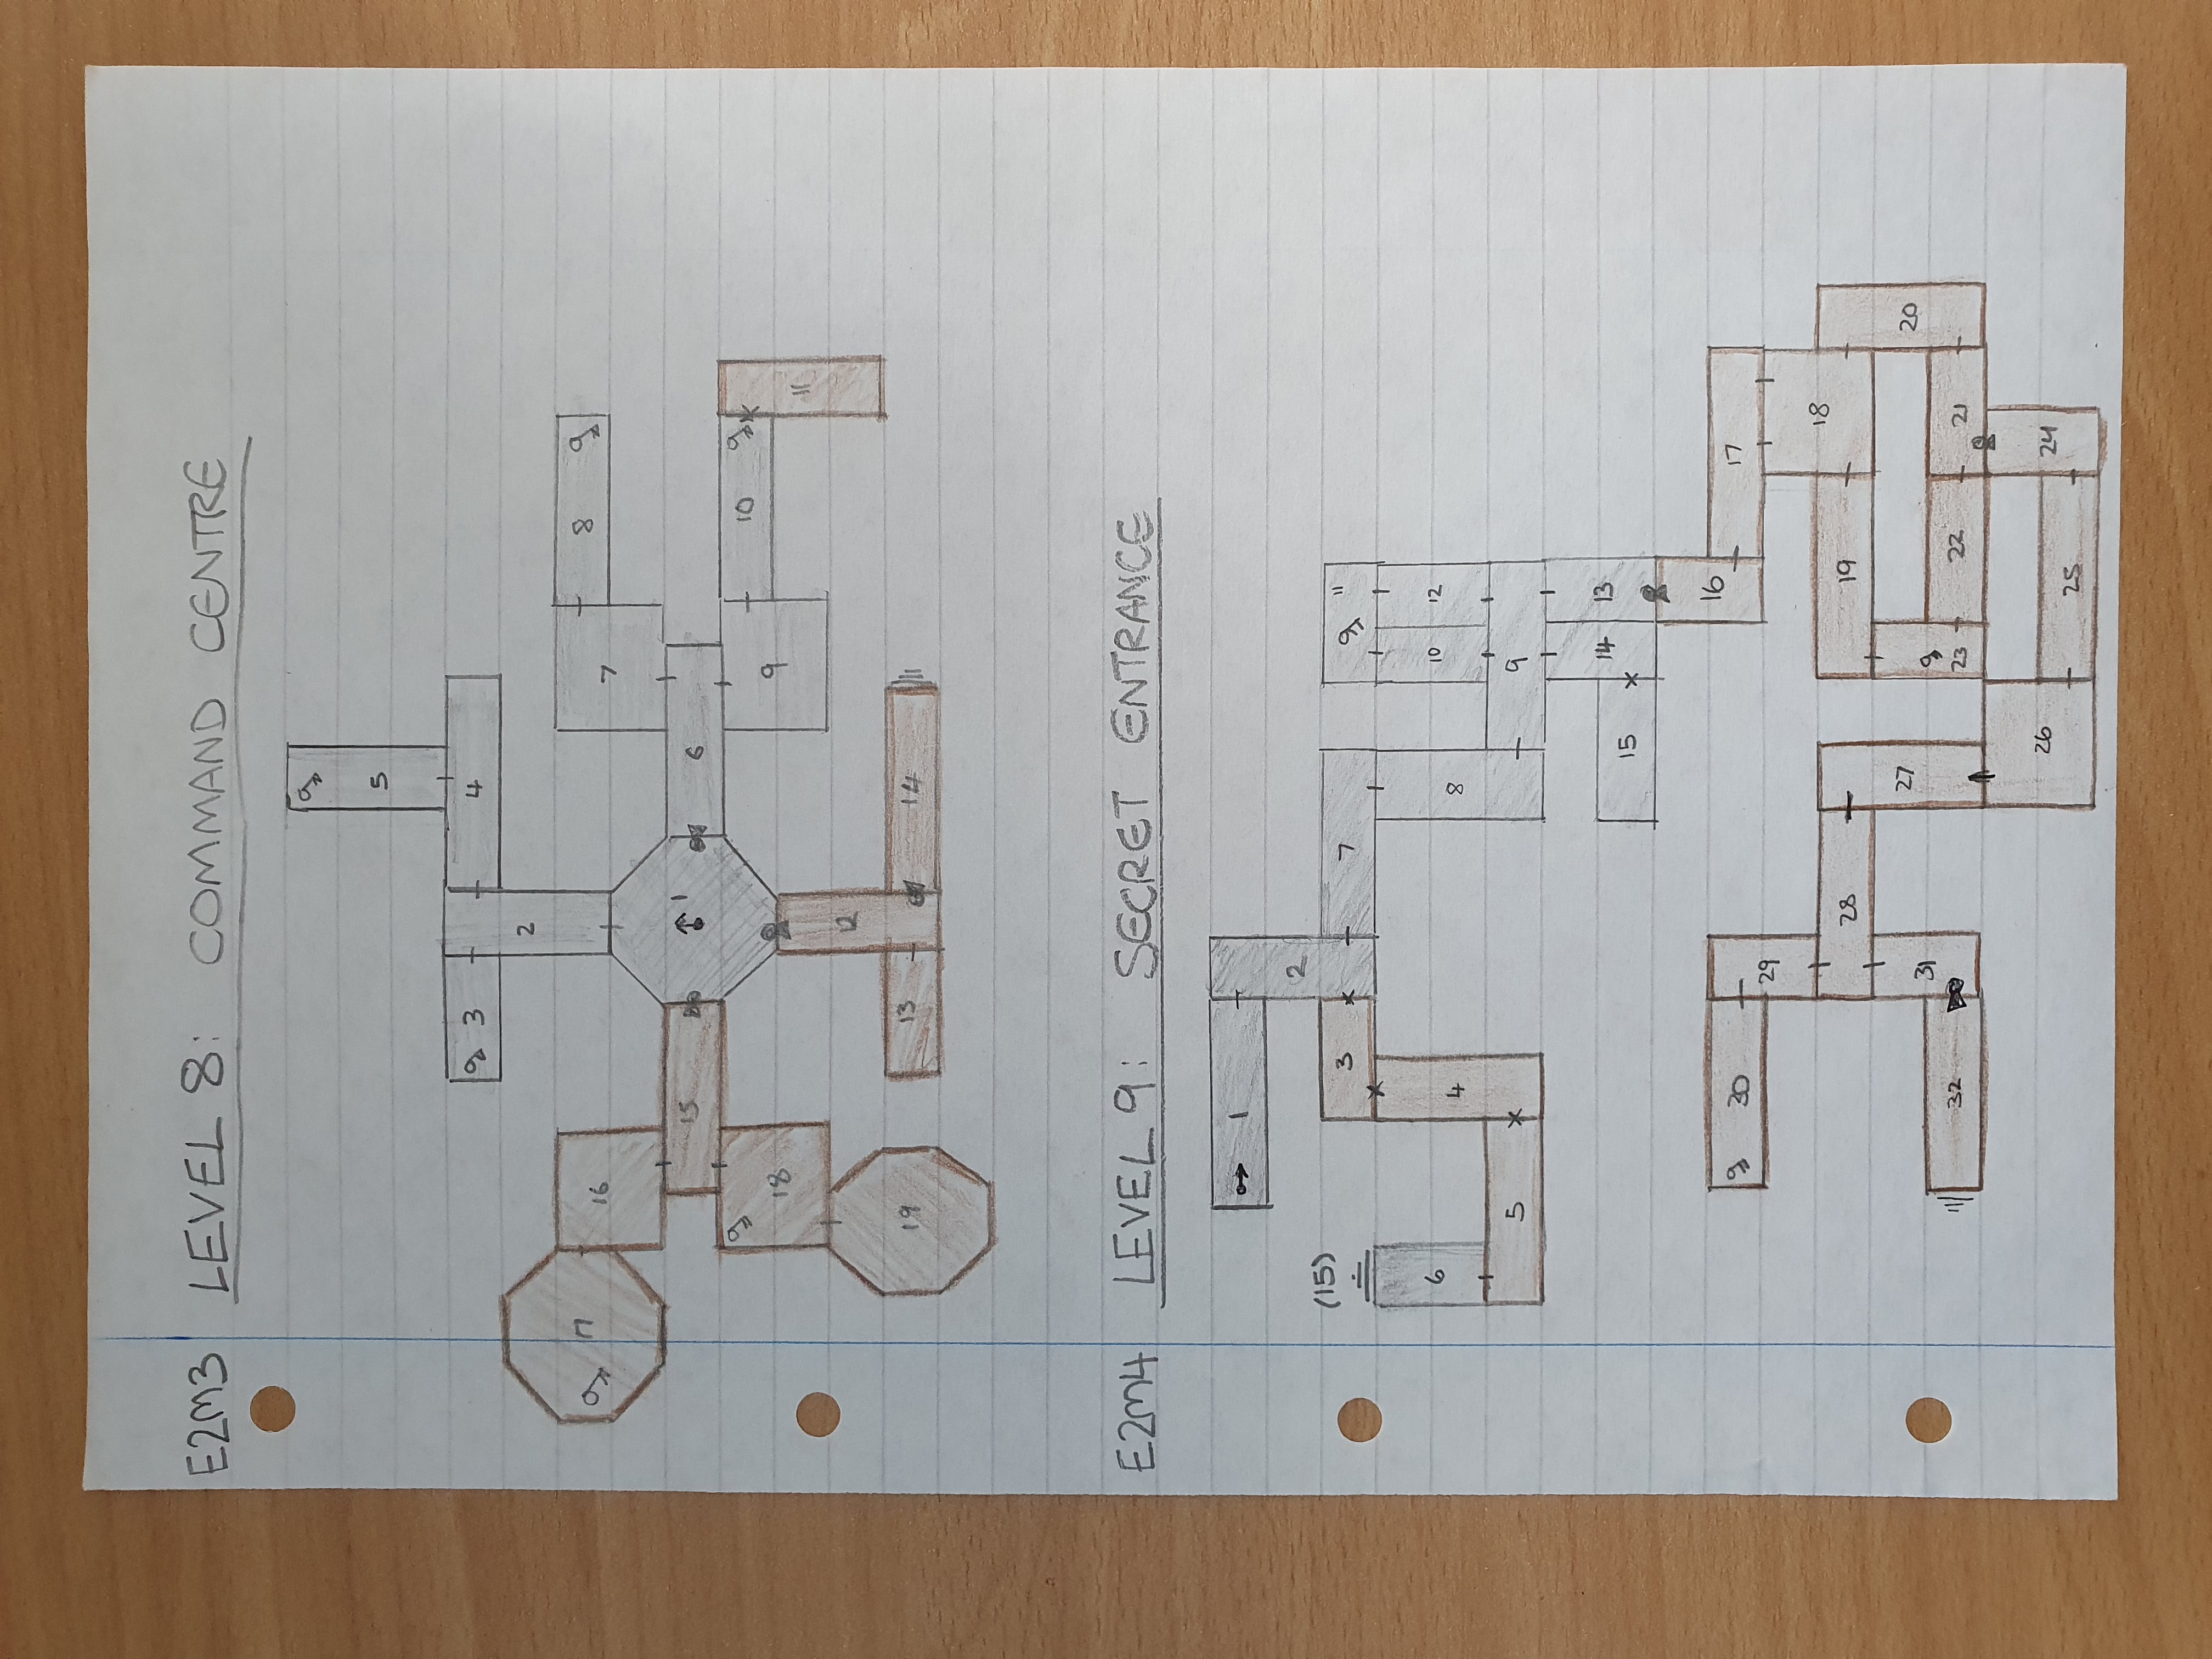 E2M3 LEVEL 8: COMMAND CENTRE
5
3 4
2
17 16 7 8
15 1 6
18 9 10 11
12
19 13 14
E2M4 LEVEL 9: SECRET ENTRANCE
1
2
(15) 3 7 11
6 4 8 10 12
5 9
15 14 13
16
30 29 17
28 19 18
31 27 20
32 23 22 21
26 25 24